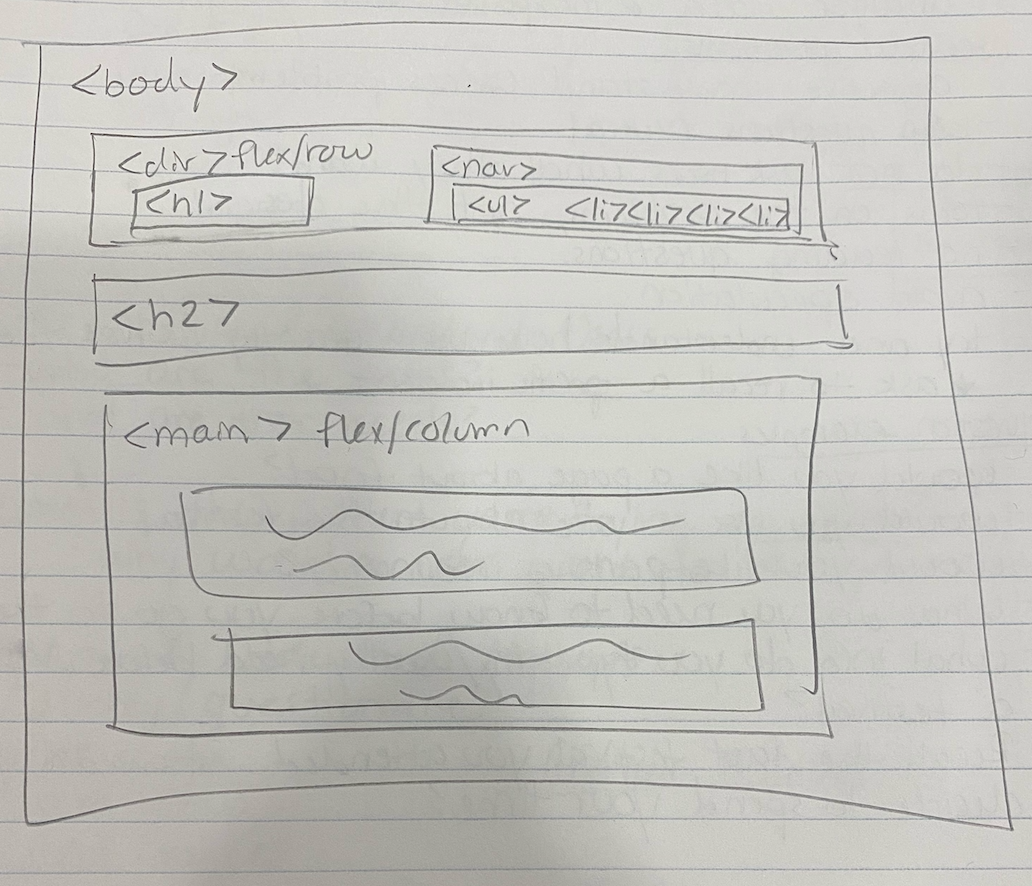 <body>
<div>flex/row
<nav>
<h1>
<ul> <li><li><li><li>
<h2>
<main> flex/column